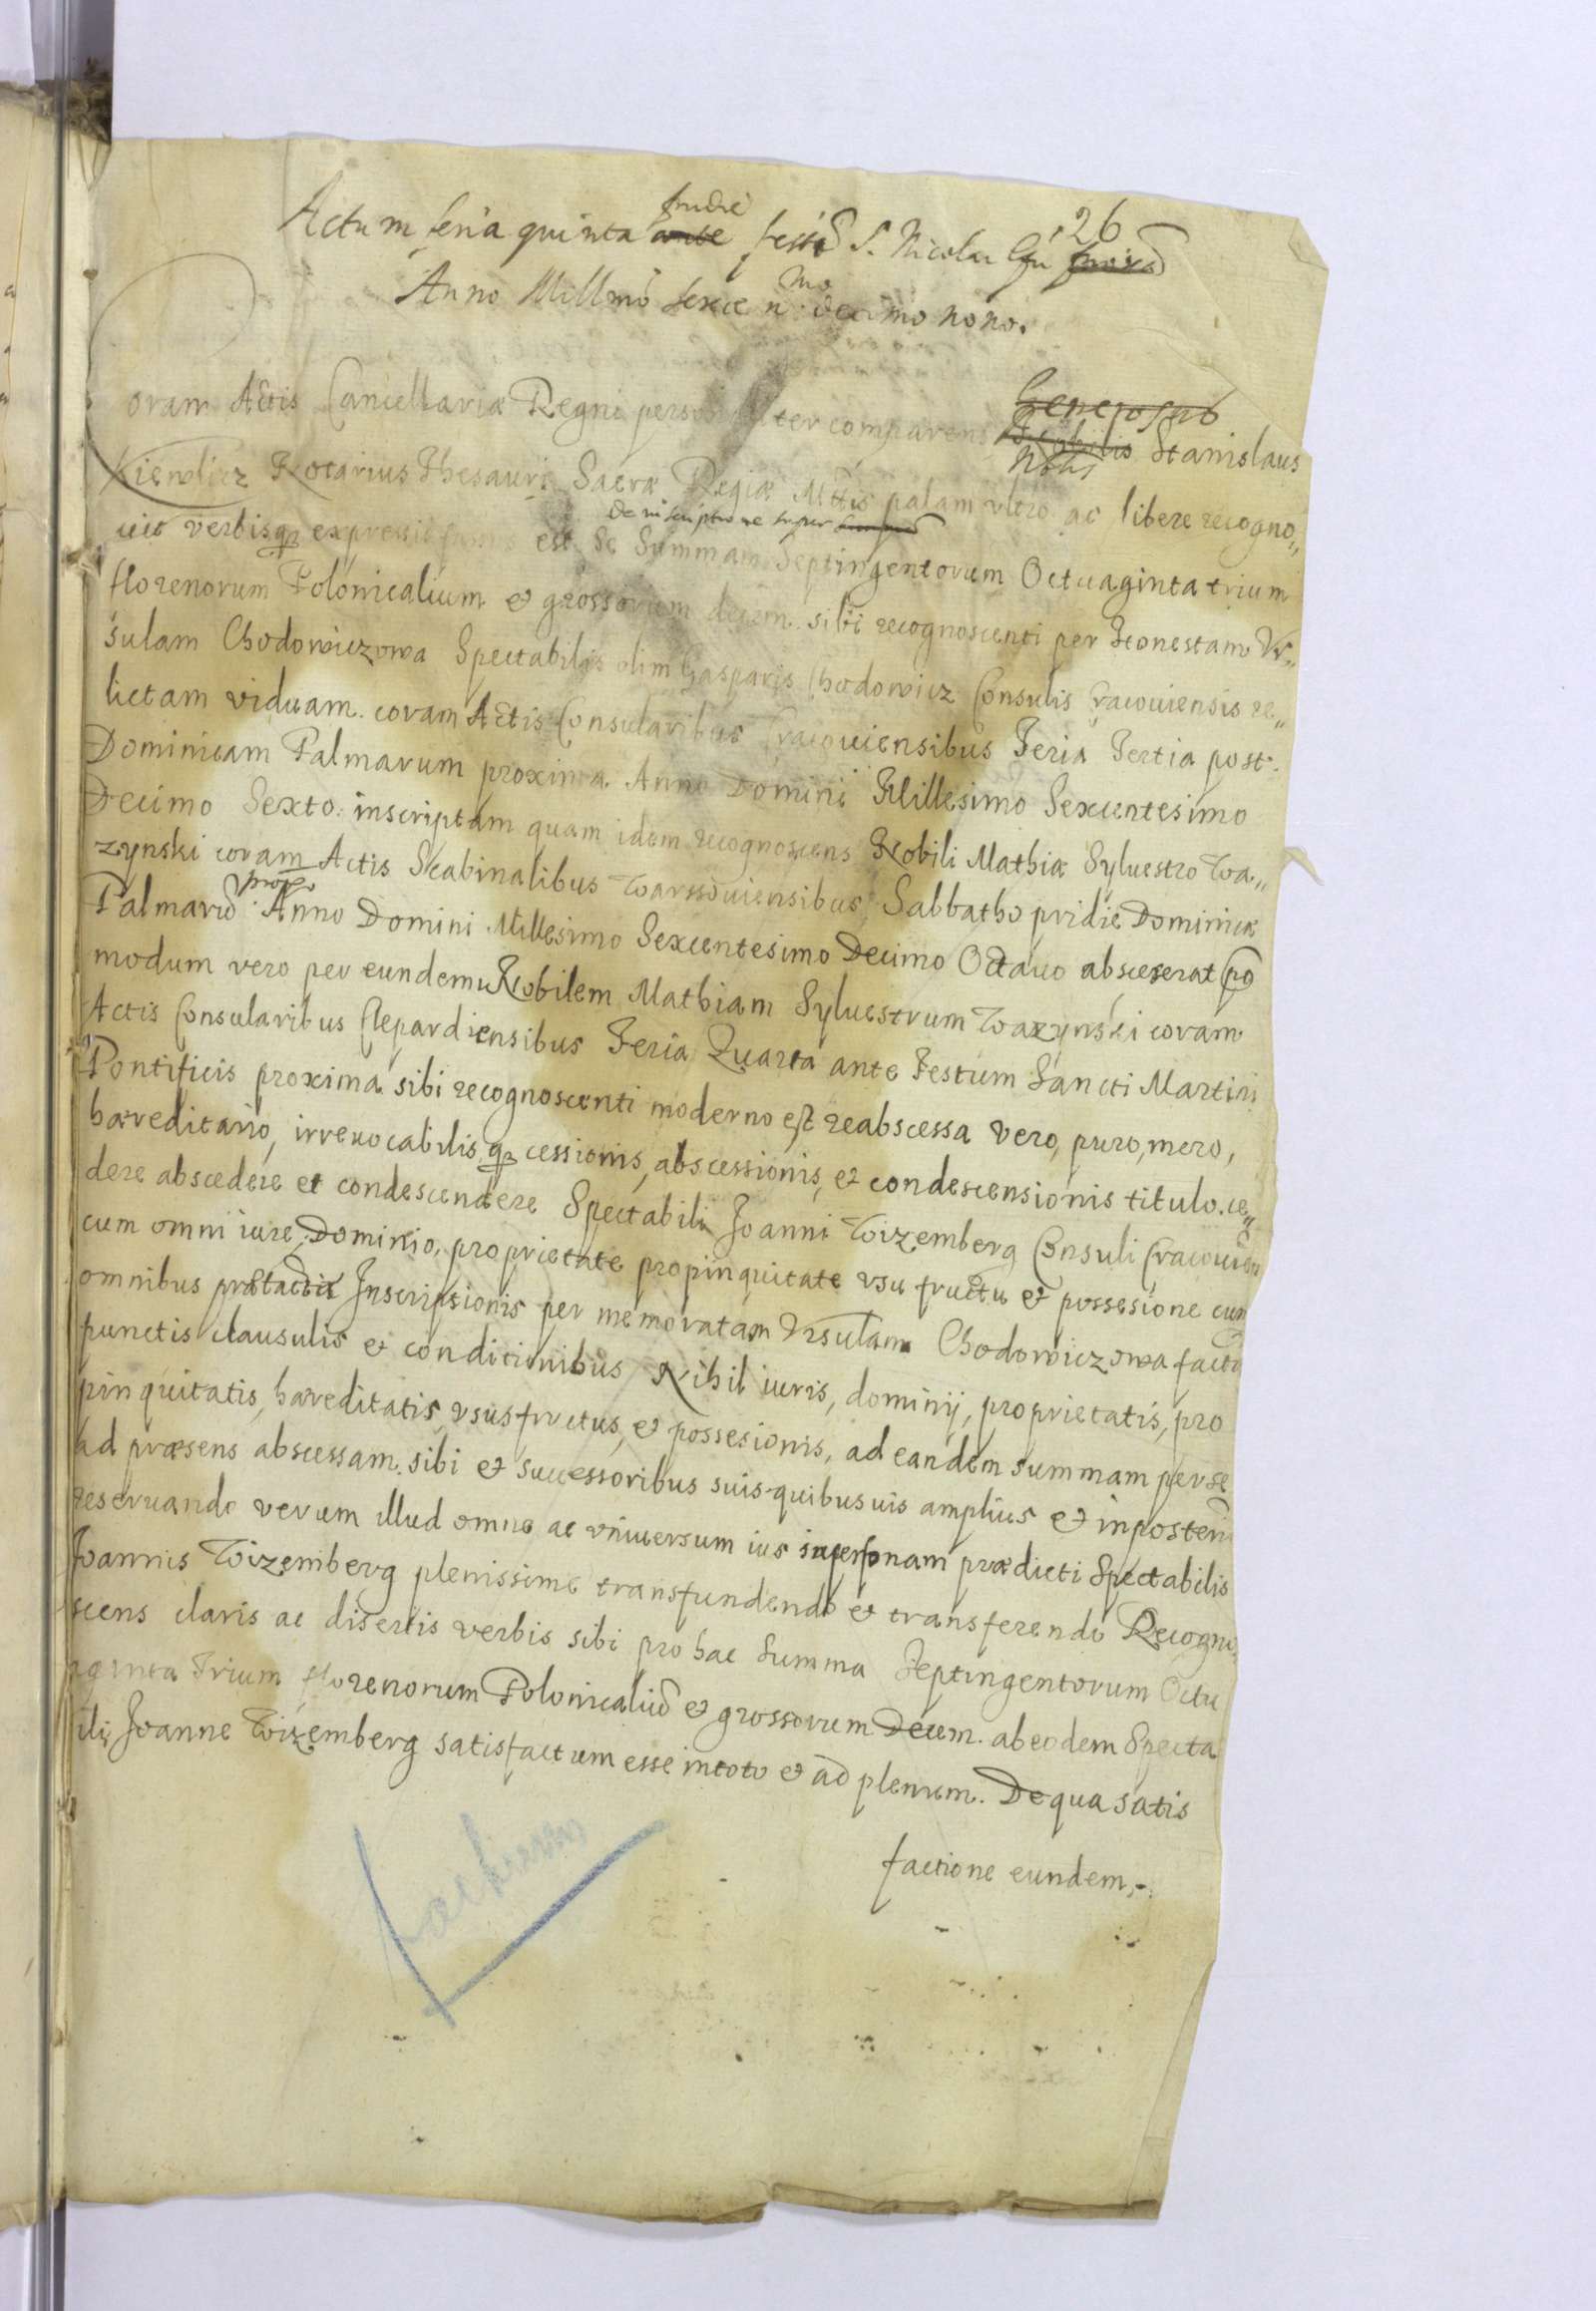 26
Actum feria quinta ante pridie festũ S. Nicolai
Anno Millmo sexcen mo decimo nono.
oram Actis Cancellariæ Regni personaliter comparens Generosus Nobilis Nobis Stanislaus
Kiewlicz Notarius Thesauri Sacræ Regiæ Mttis palam vltro ac libere recogno„
uit verbisq expressis est Se de inscriptione super Summam Septingentorum Octuaginta trium
florenorum Polonicalium et grossorum decem sibi recognoscenti per Honestam Vr„
sulam Chodowiczowa Spectabilis olim Gasparis Chodowicz Consulis Cracouiensis re„
lictam viduam coram Actis Consularibus Cracouiensibus Feria Tertia post
Dominicam Palmarum proxima Anno Domini Millesimo Sexcentesimo
Decimo Sexto inscriptam quam idem recognoscens Nobili Mathiæ Syluestro Wa„
zynski coram Actis Scabinalibus Warssouiensibus Sabbatho pridie Dominicæ
Palmarũ Anno Domini Millesimo Sexcentesimo Decimo Octauo abscesserat po
modum vero per eundem Nobilem Mathiam Syluestrum Wazynski coram
Actis Consularibus Clepardiensibus Feria Quarta ante Festum Sancti Martini
Pontificis proxima sibi recognoscenti moderno est reabscessa vero, puro, mero,
hæreditario, irreuocabilis q cessionis, abscessionis, et condescensionis titulo. ce„
dere abscedere et condescendere Spectabili Joanni Wizemberg Consuli Cracouien
cum omni iure, Dominio, proprietate propinquitate vsu fructu et possesione cum
omnibus prætactæ Inscriptionis per memoratam Vrsulam Chodowiczowa factæ
punctis clausulis et conditionibus Nihil iuris, dominij, proprietatis, pro
pinquitatis, hæreditatis, vsusfructus, et possesionis, ad eandem summam per se
ad præsens abscessam sibi et successoribus suis quibusuis amplius et inposterũ
reseruando verum illud omne ac vniuersum ius inpersonam prædicti Spectabilis
Joannis Wizemberg plenissime transfundendo et transferendo Recogno
scens claris ac disertis verbis sibi pro hac Summa Septingentorum Octu
aginta Trium florenorum Polonicaliũ et grossorum Decem ab eodem Specta
ili Joanne Wizemberg satisfactum esse intoto et ad plenum. De qua satis
factione eundem